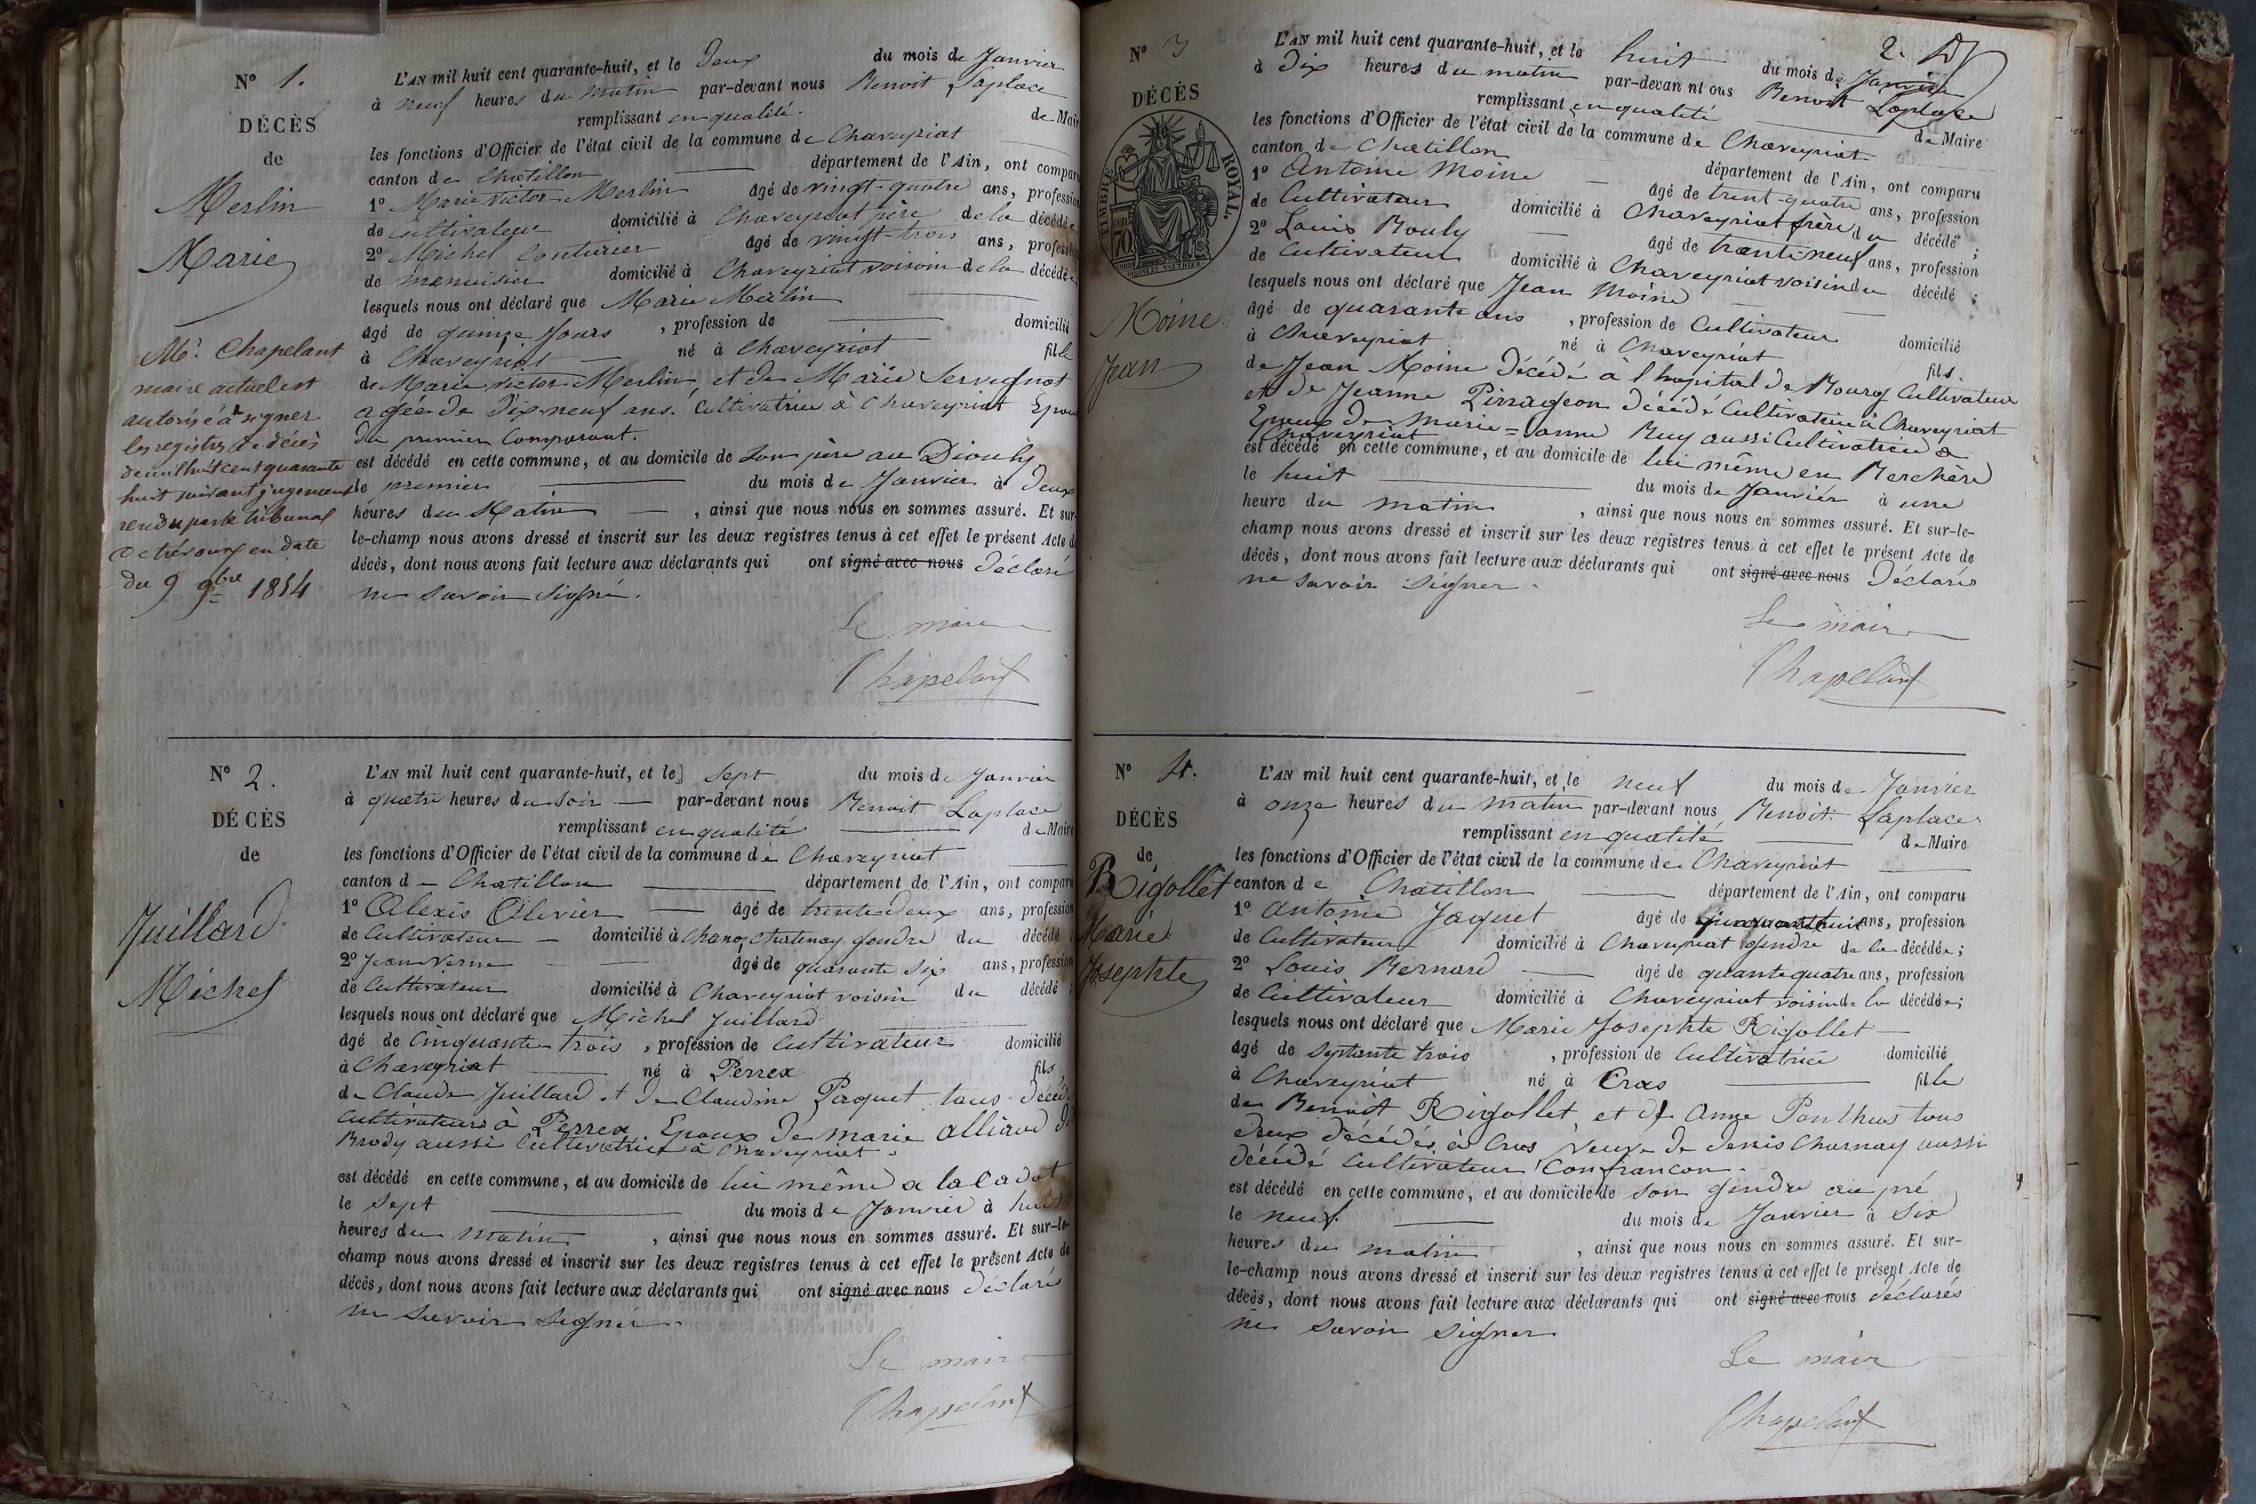 N° 1.
DÉCÈS
de
Merlin
Marie
Mr. Chapelant
maire actuel est
autorisé à signer
les registres de décès
de mil huit cent quarante
huit suivant jugement
rendu par le tribunal
de trévoux en date
du 9 9bre 1854
L'AN mil huit cent quarante-huit, et le deux du mois de Janvier
à neuf heures du matin par-devant nous Benoit Laplace
remplissant en qualité de Maire
les fonctions d'Officier de l'état civil de la commune de Chaveyriat
canton de Chatillon département de l'Ain, ont comparu
1° Marie victor Merlin âgé de vingt-quatre ans, profession
de Cultivateur domicilié à Chaveyriat père de la décédée
2° Michel Couturier âgé de vingt-trois ans, profession
de menuisier domicilié à Chaveyriat voisin de la décédée
lesquels nous ont déclaré que Marie Merlin
âgé de quinze Jours , profession de domicilié
à Chaveyriat né à Chaveyriat fille
de Marie victor Merlin, et de Marie Servignat
agée de Dix-neuf ans. Cultivatrice à Chaveyriat Epouse
du premier Comparant.
est décédé en cette commune, et au domicile de son père au Diouly
le premier du mois de Janvier à deux
heures du Matin , ainsi que nous nous en sommes assuré. Et sur-
le-champ nous avons dressé et inscrit sur les deux registres tenus à cet effet le présent Acte de
décès, dont nous avons fait lecture aux déclarants qui ont signé avec nous Déclaré
ne savoir signé.
Le maire
Chapelant
N° 2.
DÉCÈS
de
Juillard
Michel
L'AN mil huit cent quarante-huit, et le sept du mois de Janvier
à quatre heures du soir par-devant nous Benoit Laplace
remplissant en qualité de Maire
les fonctions d'Officier de l'état civil de la commune de Chaveyriat
canton de Chatillon département de l'Ain, ont comparu
1° Alexis Olivier âgé de trente deux ans, profession
de Cultivateur domicilié à Chanoz Chatenay gendre du décédé ;
2° Jean Verne âgé de quarante six ans, profession
de Cultivateur domicilié à Chaveyriat voisin du décédé ;
lesquels nous ont déclaré que Michel Juillard
âgé de Cinquante trois , profession de Cultivateur domicilié
à Chaveyriat né à Perrex fils
de Claude Juillard et de Claudine Paquet tous décédé
Cultivateurs à Perrex. Epoux de marie alliaud
Brody aussi Cultivatrice à Chaveyriat.
est décédé en cette commune, et au domicile de lui même a la Cadot
le sept du mois de Janvier à huit
heures du matin , ainsi que nous nous en sommes assuré. Et sur-le-
champ nous avons dressé et inscrit sur les deux registres tenus à cet effet le présent Acte de
décès, dont nous avons fait lecture aux déclarants qui ont signé avec nous Déclarés
ne savoir signer.
Le maire
Chapelant
2.
N° 3
DÉCÈS
TIMBRE ROYAL.
70
Moine
Jean
L'AN mil huit cent quarante-huit, et le huit du mois de Janvier
à Dix heures du matin par-devant nous Benoit Laplace
remplissant en qualité de Maire
les fonctions d'Officier de l'état civil de la commune de Chaveyriat
canton de Chatillon département de l'Ain, ont comparu
1° Antoine Moine âgé de trent-quatre ans, profession
de Cultivateur domicilié à Chaveyriat frère du décédé ;
2° Louis Bouly âgé de trente neuf ans, profession
de Cultivateur domicilié à Chaveyriat voisin du décédé ;
lesquels nous ont déclaré que Jean Moine
âgé de quarante ans , profession de Cultivateur domicilié
à Chaveyriat né à Chaveyriat fils
de Jean Moine Décédé à l'hopital de Bourg Cultivateur
et de Jeanne Pirrageon Décédé Cultivatrice à Chaveyriat
Epoux de Marie=anne Buy aussi Cultivatrice à
Chaveyriat
est décédé en cette commune, et au domicile de lui même en Berchère
le huit du mois de Janvier à une
heure du matin , ainsi que nous nous en sommes assuré. Et sur-le-
champ nous avons dressé et inscrit sur les deux registres tenus à cet effet le présent Acte de
décès, dont nous avons fait lecture aux déclarants qui ont signé avec nous Déclarés
ne savoir signer.
Le maire
Chapelant
N° 4.
DÉCÈS
de
Rigollet
Marie
Josephte
L'AN mil huit cent quarante-huit, et le neuf du mois de Janvier
à onze heures du matin par-devant nous Benoit Laplace
remplissant en qualité de Maire
les fonctions d'Officier de l'état civil de la commune de Chaveyriat
canton de Chatillon département de l'Ain, ont comparu
1° Antoine Jaquet âgé de ans, profession
de Cultivateur domicilié à Chaveyriat gendre de la décédée ;
2° Louis Bernard âgé de quante quatre ans, profession
de Cultivateur domicilié à Chaveyriat voisin de la décédée ;
lesquels nous ont déclaré que Marie Josephte Rigollet
âgé de septante trois , profession de Cultivatrice domicilié
à Chaveyriat né à Cras fille
de Benoit Rigollet, et de Anne Ponthus tous
deux décédés à Cras veuve de denis Charnay aussi
décédé Cultivateur Confrancon.
est décédé en cette commune, et au domicile de son gendre au pré
le neuf du mois de Janvier à six
heures du matin , ainsi que nous nous en sommes assuré. Et sur-
le-champ nous avons dressé et inscrit sur les deux registres tenus à cet effet le présent Acte de
décès, dont nous avons fait lecture aux déclarants qui ont signé avec nous déclarés
ne savoir signer
Le maire
Chapelant